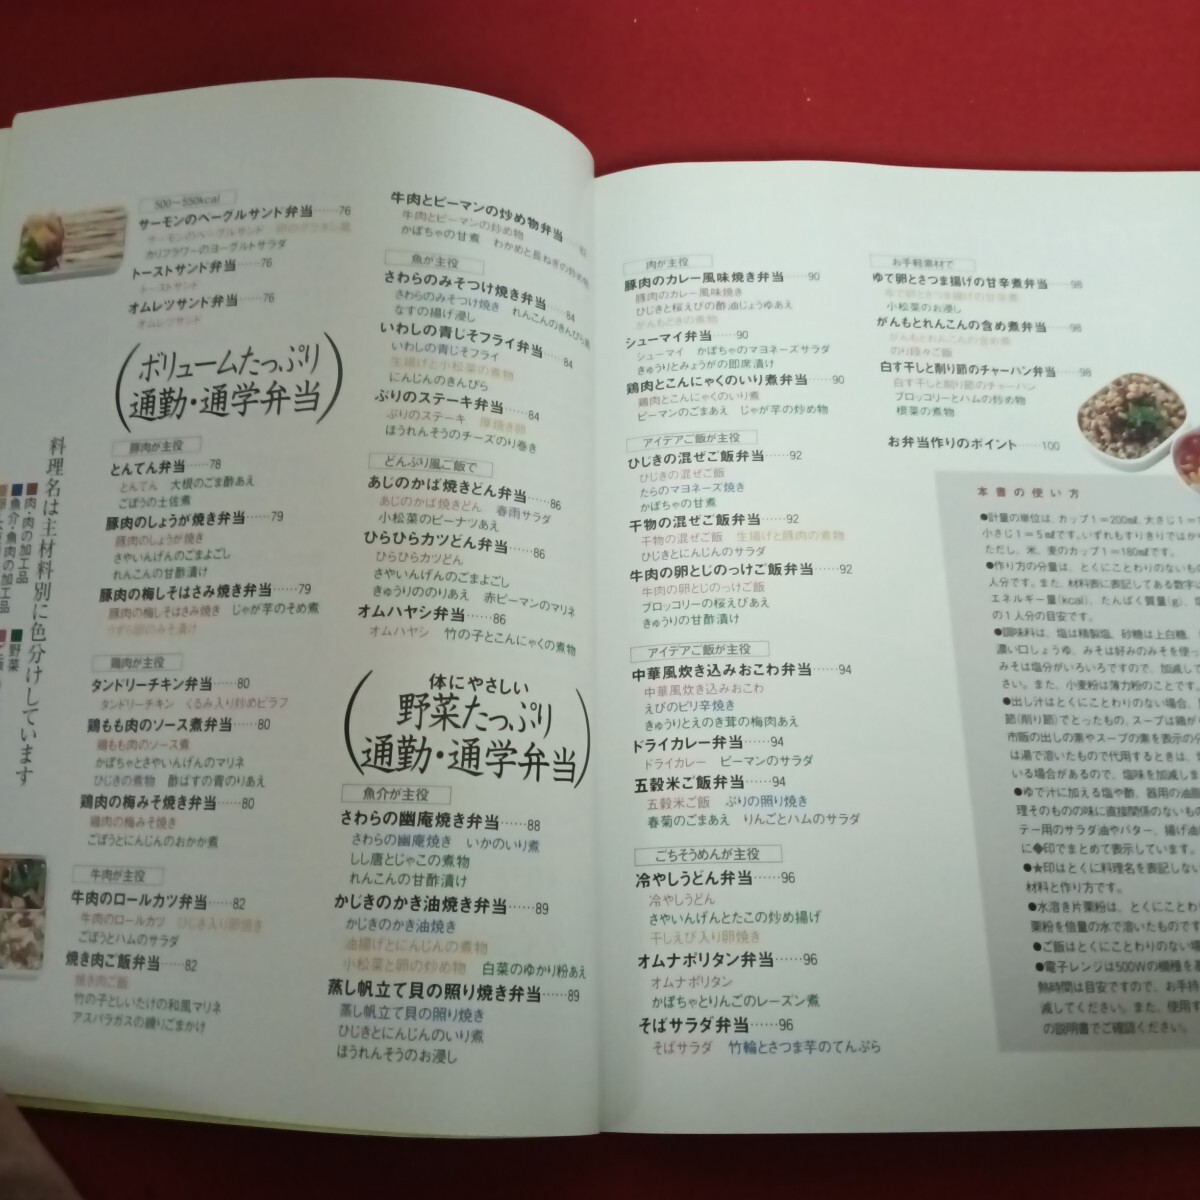 500〜550kcal
サーモンのベーグルサンド弁当……76
サーモンのベーグルサンド 卵のグラタン風
カリフラワーのヨーグルトサラダ
トーストサンド弁当……76
トーストサンド
オムレツサンド弁当……76
オムレツサンド
ボリュームたっぷり
通勤・通学弁当
豚肉が主役
とんてん弁当……78
とんてん 大根のごま酢あえ
ごぼうの土佐煮
豚肉のしょうが焼き弁当……79
豚肉のしょうが焼き
さやいんげんのごまよごし
れんこんの甘酢漬け
豚肉の梅しそはさみ焼き弁当……79
豚肉の梅しそはさみ焼き じゃが芋のそめ煮
うずら卵のみそ漬け
鶏肉が主役
タンドリーチキン弁当……80
タンドリーチキン くるみ入り炒めピラフ
鶏もも肉のソース煮弁当……80
鶏もも肉のソース煮
かぼちゃとさやいんげんのマリネ
ひじきの煮物 酢ばすの青のりあえ
鶏肉の梅みそ焼き弁当……80
鶏肉の梅みそ焼き
ごぼうとにんじんのおかか煮
牛肉が主役
牛肉のロールカツ弁当……82
牛肉のロールカツ ひじき入り卵焼き
ごぼうとハムのサラダ
焼き肉ご飯弁当……82
焼き肉ご飯
竹の子としいたけの和風マリネ
アスパラガスの練りごまかけ
料理名は主材料別に色分けしています
■肉・肉の加工品
■魚介・魚肉の加工品
■野菜
牛肉とピーマンの炒め物弁当……83
牛肉とピーマンの炒め物
かぼちゃの甘煮 わかめと長ねぎの炒め物
魚が主役
さわらのみそつけ焼き弁当……84
さわらのみそつけ焼き れんこんのきんぴら
なすの揚げ浸し
いわしの青じそフライ弁当……84
いわしの青じそフライ
生揚げと小松菜の煮物
にんじんのきんぴら
ぶりのステーキ弁当……84
ぶりのステーキ 厚焼き卵
ほうれんそうのチーズのり巻き
どんぶり風ご飯で
あじのかば焼きどん弁当……86
あじのかば焼きどん 春雨サラダ
小松菜のピーナツあえ
ひらひらカツどん弁当……86
ひらひらカツどん
さやいんげんのごまよごし
きゅうりののりあえ 赤ピーマンのマリネ
オムハヤシ弁当……86
オムハヤシ 竹の子とこんにゃくの煮物
体にやさしい
野菜たっぷり
通勤・通学弁当
魚介が主役
さわらの幽庵焼き弁当……88
さわらの幽庵焼き いかのいり煮
しし唐とじゃこの煮物
れんこんの甘酢漬け
かじきのかき油焼き弁当……89
かじきのかき油焼き
油揚げとにんじんの煮物
小松菜と卵の炒め物 白菜のゆかり粉あえ
蒸し帆立て貝の照り焼き弁当……89
蒸し帆立て貝の照り焼き
ひじきとにんじんのいり煮
ほうれんそうのお浸し
肉が主役
豚肉のカレー風味焼き弁当……90
豚肉のカレー風味焼き
ひじきと桜えびの酢油じょうゆあえ
がんもどきの煮物
シューマイ弁当……90
シューマイ かぼちゃのマヨネーズサラダ
きゅうりとみょうがの即席漬け
鶏肉とこんにゃくのいり煮弁当……90
鶏肉とこんにゃくのいり煮
ピーマンのごまあえ じゃが芋の炒め物
アイデアご飯が主役
ひじきの混ぜご飯弁当……92
ひじきの混ぜご飯
たらのマヨネーズ焼き
かぼちゃの甘煮
干物の混ぜご飯弁当……92
干物の混ぜご飯 生揚げと豚肉の煮物
ひじきとにんじんのサラダ
牛肉の卵とじのっけご飯弁当……92
牛肉の卵とじのっけご飯
ブロッコリーの桜えびあえ
きゅうりの甘酢漬け
アイデアご飯が主役
中華風炊き込みおこわ弁当……94
中華風炊き込みおこわ
えびのピリ辛焼き
きゅうりとえのき茸の梅肉あえ
ドライカレー弁当……94
ドライカレー ピーマンのサラダ
五穀米ご飯弁当……94
五穀米ご飯 ぶりの照り焼き
春菊のごまあえ りんごとハムのサラダ
ごちそうめんが主役
冷やしうどん弁当……96
冷やしうどん
さやいんげんとたこの炒め揚げ
干しえび入り卵焼き
オムナポリタン弁当……96
オムナポリタン
かぼちゃとりんごのレーズン煮
そばサラダ弁当……96
そばサラダ 竹輪とさつま芋のてんぷら
お手軽素材で
ゆで卵とさつま揚げの甘辛煮弁当……98
ゆで卵とさつま揚げの甘辛煮
小松菜のお浸し
がんもとれんこんの含め煮弁当……98
がんもとれんこんの含め煮
のり段々ご飯
白す干しと削り節のチャーハン弁当……98
白す干しと削り節のチャーハン
ブロッコリーとハムの炒め物
根菜の煮物
お弁当作りのポイント……100
本書の使い方
●計量の単位は、カップ1＝200㎖、大さじ1＝1
小さじ1＝5㎖です。いずれもすりきりではか
ただし、米、麦のカップ1＝180㎖です。
●作り方の分量は、とくにことわりのないもの
人分です。また、材料表に表記してある数字
エネルギー量(kcal)、たんぱく質量(g)、
の1人分の目安です。
●調味料は、塩は精製塩、砂糖は上白糖、
濃い口しょうゆ、みそは好みのみそを使っ
みそは塩分がいろいろですので、加減して
さい。また、小麦粉は薄力粉のことです。
●出し汁はとくにことわりのない場合、
節(削り節)でとったもの、スープは鶏が
市販の出しの素やスープの素を表示の分
は湯で溶いたもので代用するときは、
いる場合があるので、塩味を加減しま
●ゆで汁に加える塩や酢、器用の油脂
理そのものの味に直接関係のないもの
テー用のサラダ油やバター、揚げ油
に◆印でまとめて表示しています。
●★印はとくに料理名を表記しない
材料と作り方です。
●水溶き片栗粉は、とくにことわり
栗粉を倍量の水で溶いたものです
●ご飯はとくにことわりのない場
●電子レンジは500Wの機種を基
熱時間は目安ですので、お手持
減してください。また、使用す
の説明書でご確認ください。